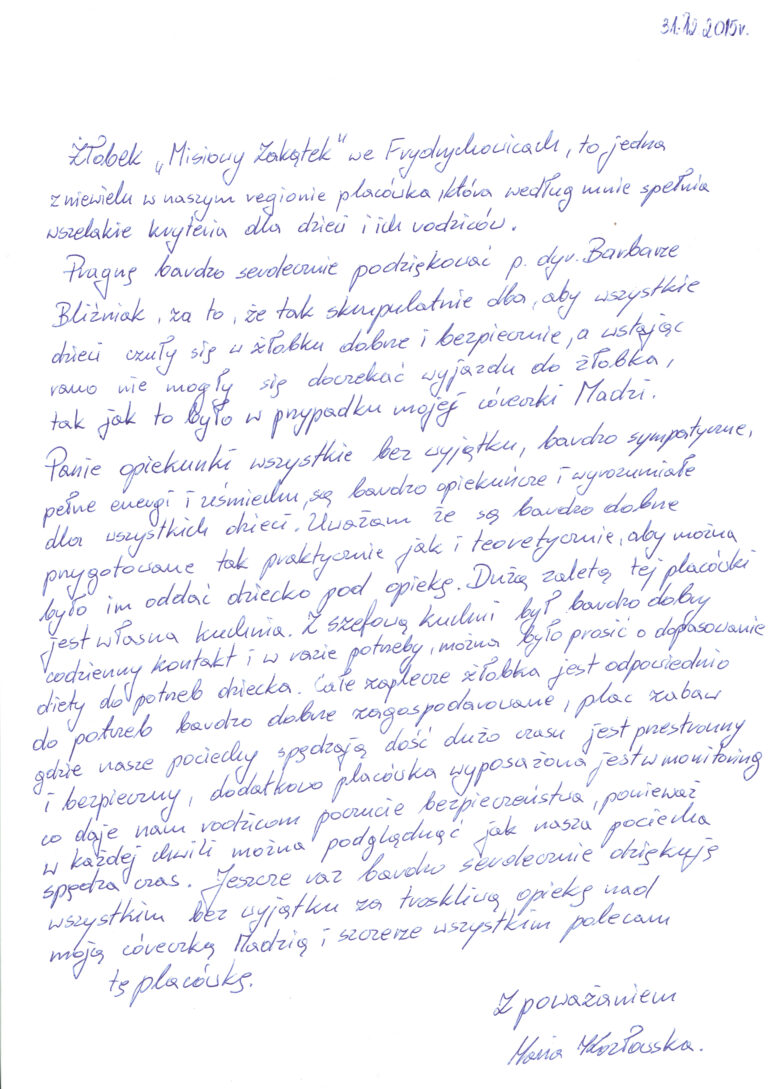 31.12.2015r.
Żłobek „Misiowy Zakątek" we Frydrychowicach, to jedna
z niewielu w naszym regionie placówka, która według mnie spełnia
wszelakie kryteria dla dzieci i ich rodziców.
Pragnę bardzo serdecznie podziękować p. dyr. Barbarze
Bliźniak, za to, że tak skrupulatnie dba, aby wszystkie
dzieci czuły się w żłobku dobrze i bezpiecznie, a wstając
rano nie mogły się doczekać wyjazdu do żłobka,
tak jak to było w przypadku mojej córeczki Madzi.
Panie opiekunki wszystkie bez wyjątku, bardzo sympatyczne,
pełne energi i uśmiechu, są bardzo opiekuńcze i wyrozumiałe
dla wszystkich dzieci. Uważam że są bardzo dobrze
przygotowane tak praktycznie jak i teoretycznie, aby można
było im oddać dziecko pod opiekę. Dużą zaletą tej placówki
jest własna kuchnia. Z szefową kuchni był bardzo dobry
codzienny kontakt i w razie potrzeby, można było prosić o dopasowanie
diety do potrzeb dziecka. Całe zaplecze żłobka jest odpowiednio
do potrzeb bardzo dobrze zagospodarowane, plac zabaw
gdzie nasze pociechy spędzają dość dużo czasu jest przestronny
i bezpieczny, dodatkowo placówka wyposażona jest w monitoring
co daje nam rodzicom poczucie bezpieczeństwa, ponieważ
w każdej chwili można podglądnąć jak nasza pociecha
spędza czas. Jeszcze raz bardzo serdecznie dziękuję
wszystkim bez wyjątku za troskliwą opiekę nad
moją córeczką Madzią i szczerze wszystkim polecam
tę placówkę.
Z poważaniem
Maria Kozłowska.